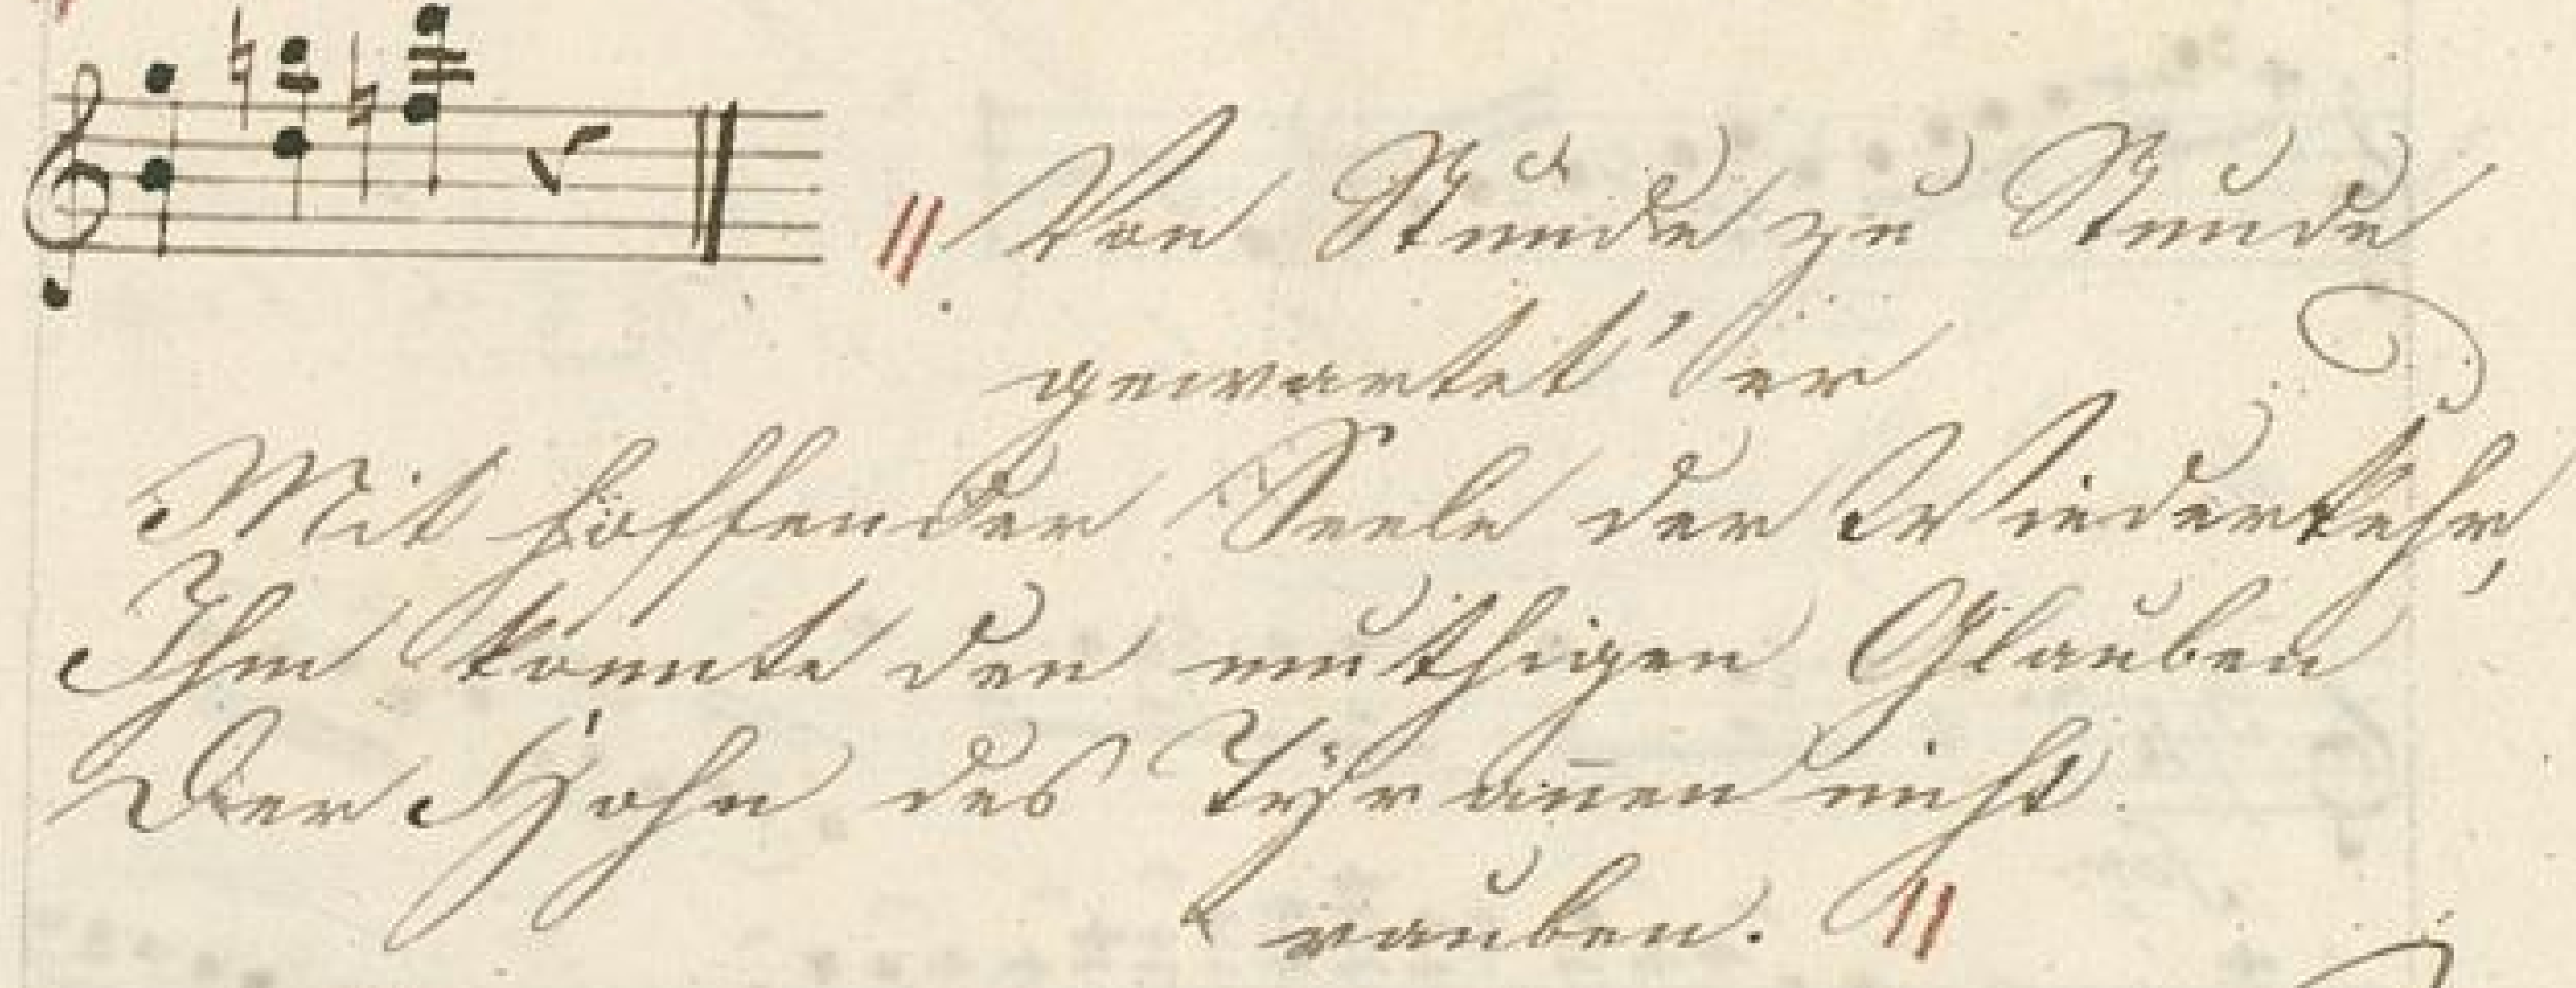 Von Stunde zu Stunde
gewartet' er
Mit hoffender Seele der Wiederkehr,
Ihm konnte den muthigen Glauben
Der Hohn des Tÿrañen nicht
rauben.